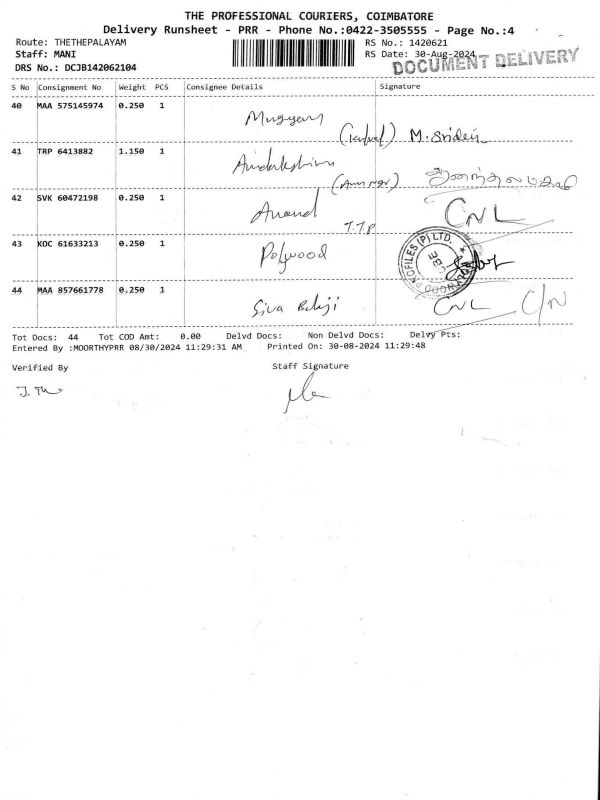 THE PROFESSIONAL COURIERS, COIMBATORE
Delivery Runsheet - PRR - Phone No.:0422-3505555 - Page No.:4
Route: THETHEPALAYAM RS No.: 1420621
Staff: MANI RS Date: 30-Aug-2024
DOCUMENT DELIVERY
DRS No.: DCJB142062104
S No Consignment No Weight PCS Consignee Details Signature
40 MAA 575145974 0.250 1
M. Sridevi
41 TRP 6413882 1.150 1
42 SVK 60472198 0.250 1 Anand CNL
T.T.P
43 KOC 61633213 0.250 1 Polywood
PROFILES (P) LTD.
CBE
44 MAA 857661778 0.250 1 Siva Balaji CNL C/N
Tot Docs: 44 Tot COD Amt: 0.00 Delvd Docs: Non Delvd Docs: Delvy Pts:
Entered By :MOORTHYPRR 08/30/2024 11:29:31 AM Printed On: 30-08-2024 11:29:48
Verified By Staff Signature